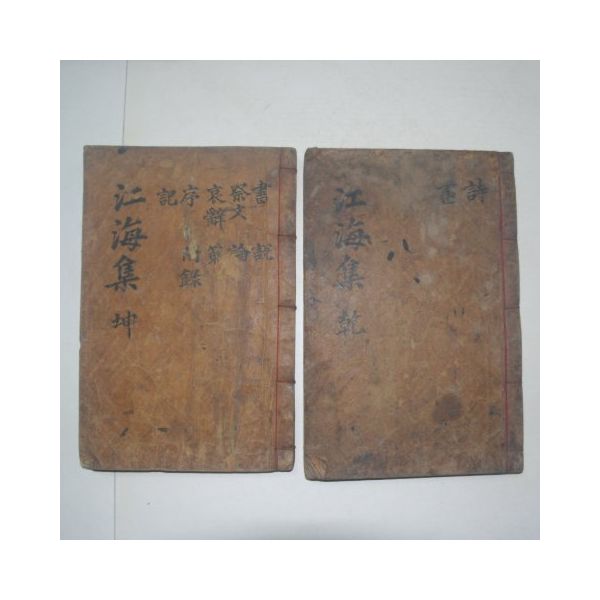 詩
江海集 乾
書 說
祭文 論
哀辭 策
序 附錄
記
江海集 坤